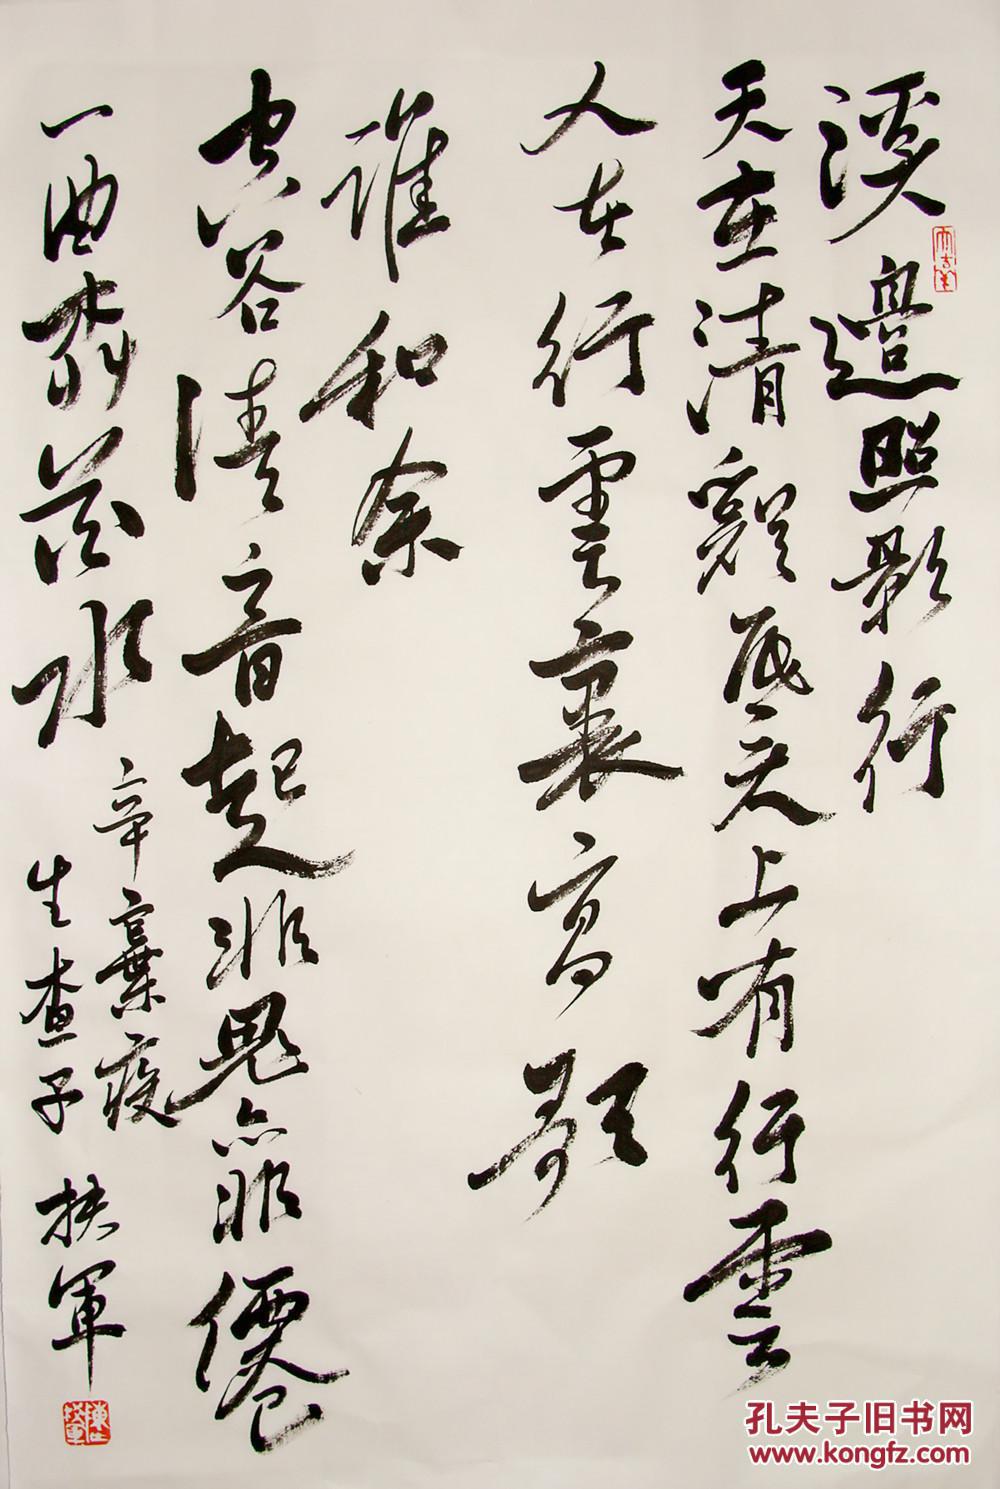 溪邊照影行
天在清谿底天上有行雲
人在行雲裏高歌
誰和余
空谷清音起非鬼亦非僊
一曲桃花水
辛棄疾
生查子 扶軍
孔夫子旧书网
www.kongfz.com